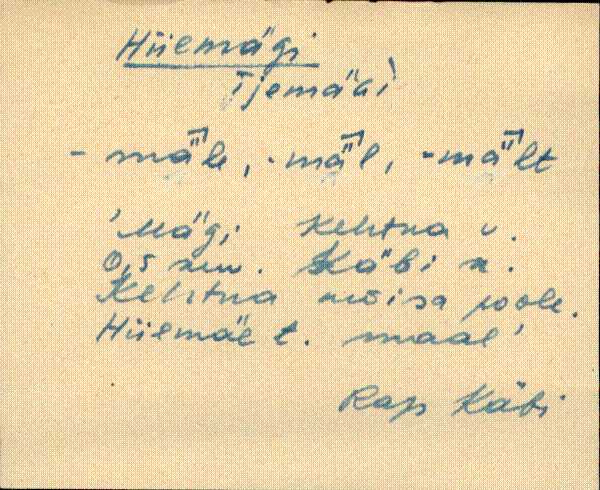 Hiiemägi
TjemäGì
- mäle, -mäl, -mält
'Mägi Kehtna v.
0,5 km. Käbi k.
Kehtna mõisa poole.
Hiiemäe t. maal'
Rap Käbi